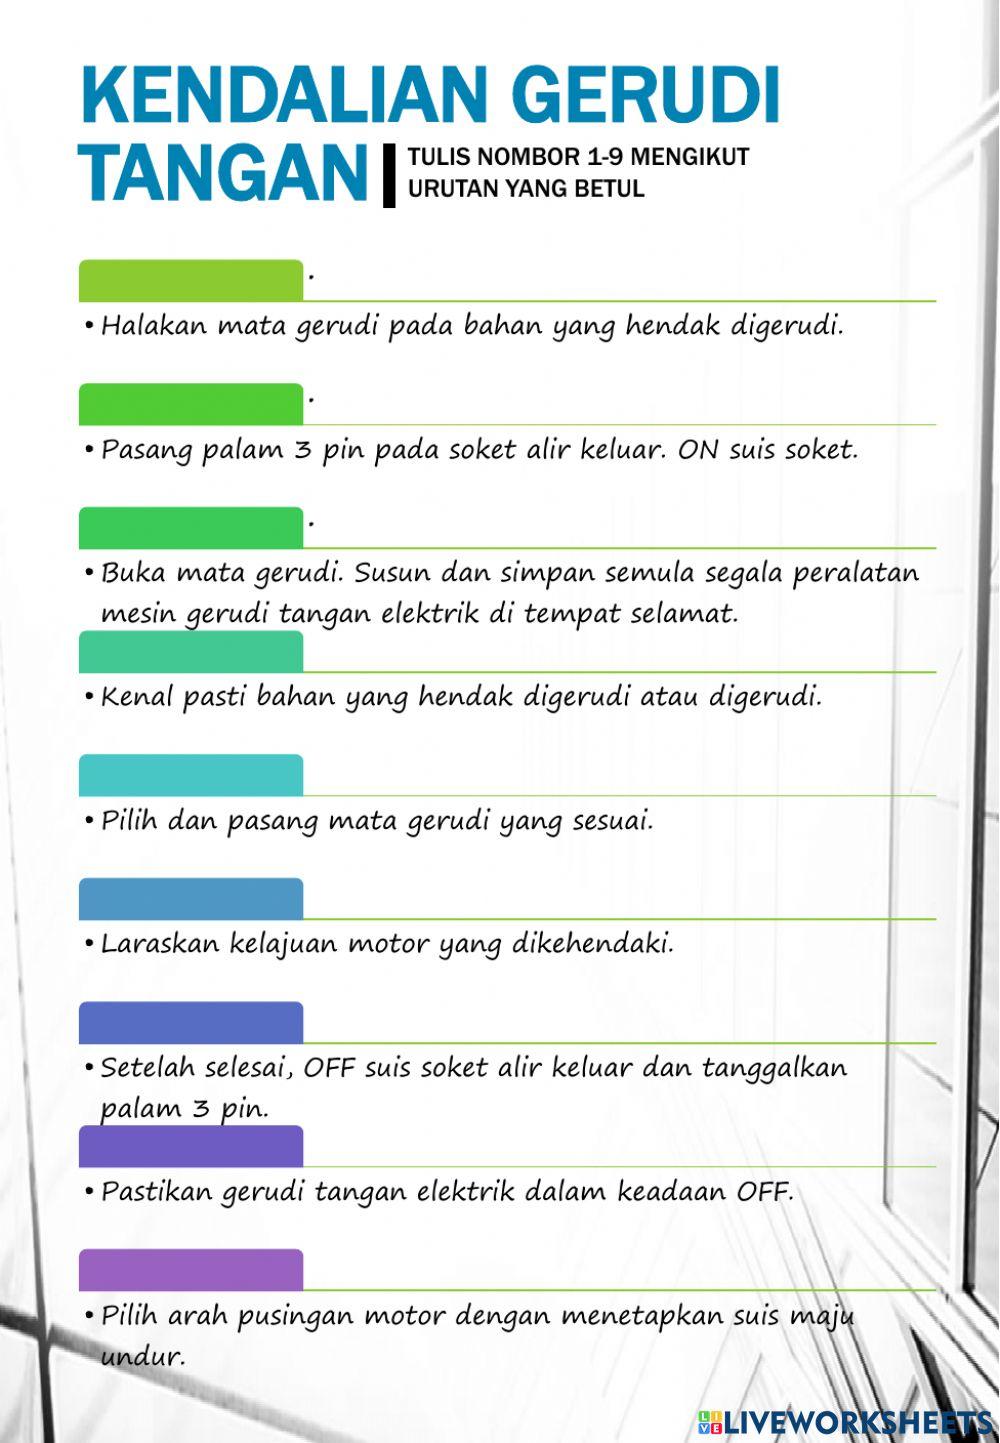 KENDALIAN GERUDI
TANGAN
TULIS NOMBOR 1-9 MENGIKUT
URUTAN YANG BETUL
.
• Halakan mata gerudi pada bahan yang hendak digerudi.
.
• Pasang palam 3 pin pada soket alir keluar. ON suis soket.
.
• Buka mata gerudi. Susun dan simpan semula segala peralatan
mesin gerudi tangan elektrik di tempat selamat.
• Kenal pasti bahan yang hendak digerudi atau digerudi.
• Pilih dan pasang mata gerudi yang sesuai.
• Laraskan kelajuan motor yang dikehendaki.
• Setelah selesai, OFF suis soket alir keluar dan tanggalkan
palam 3 pin.
• Pastikan gerudi tangan elektrik dalam keadaan OFF.
• Pilih arah pusingan motor dengan menetapkan suis maju
undur.
LIVE LIVEWORKSHEETS